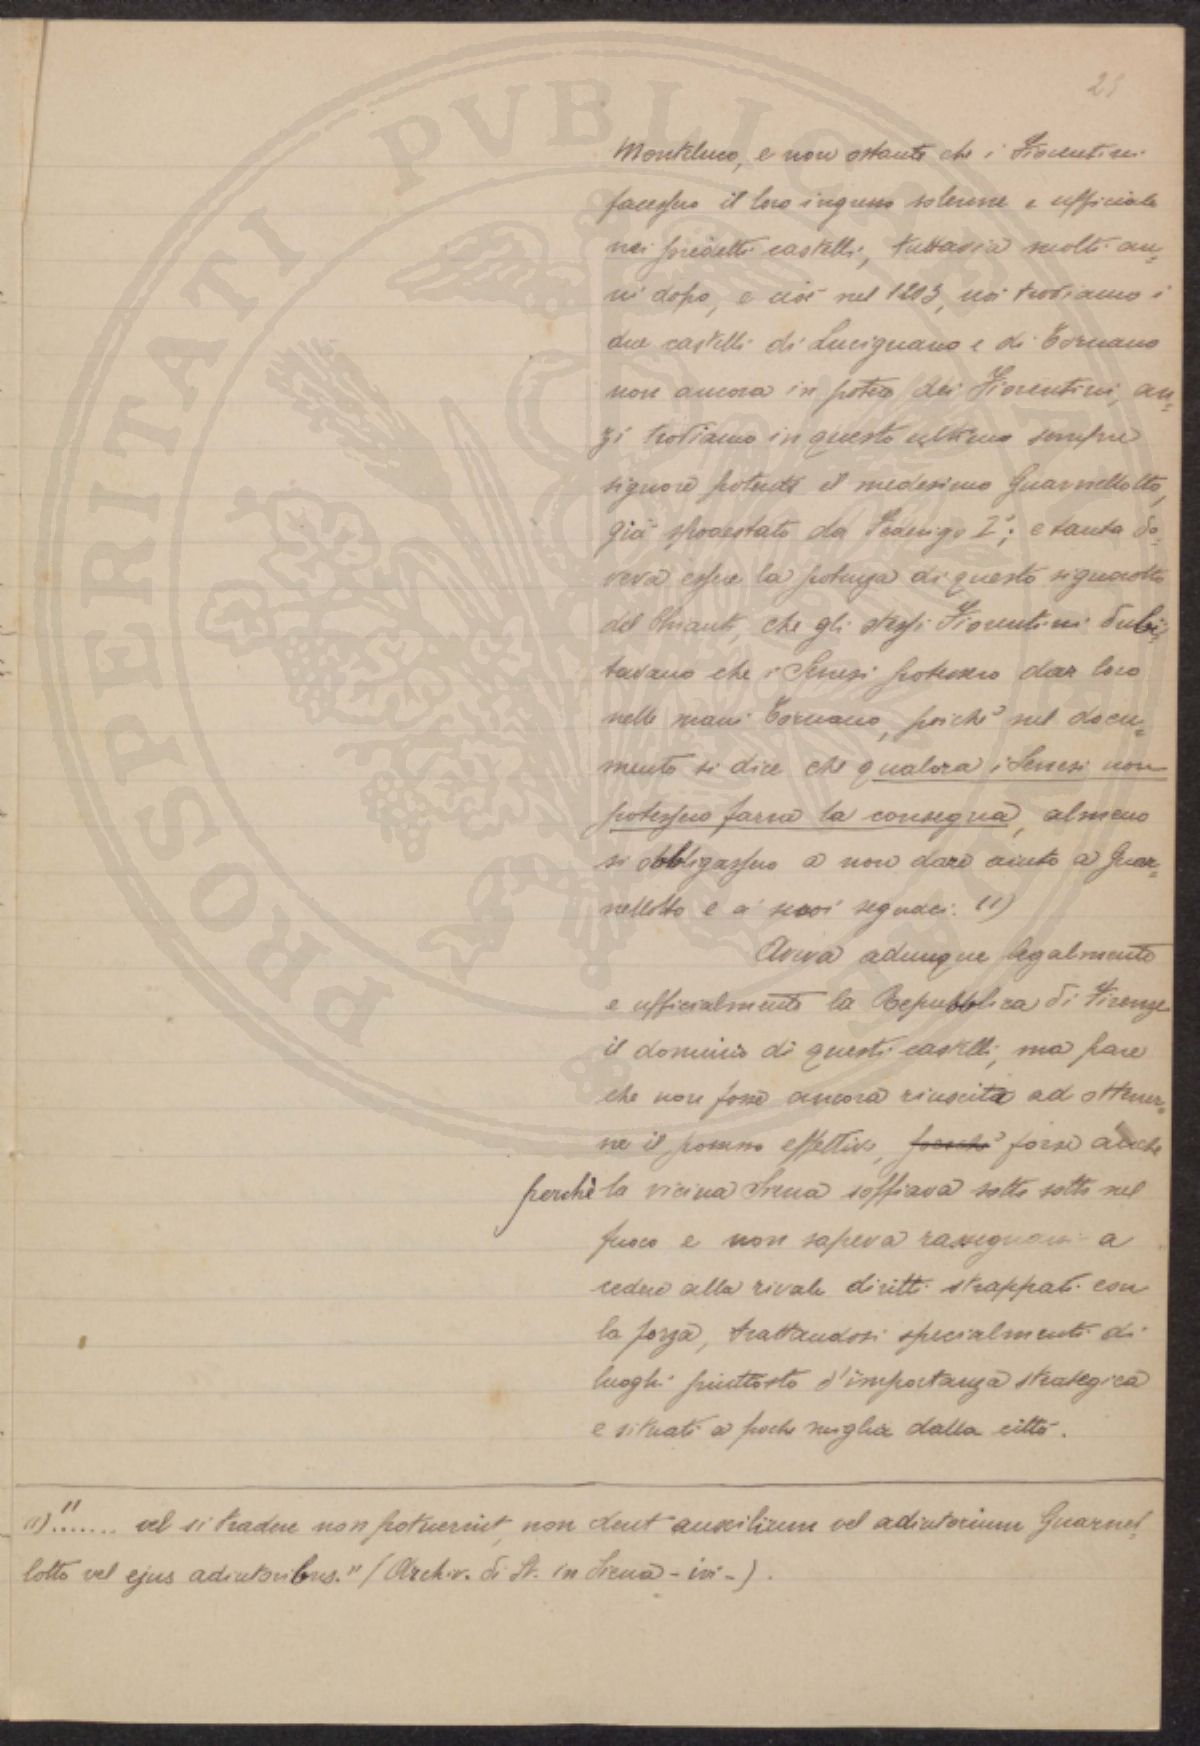 25
Monteluco, e non ostante che i Fiorentini
facessero il loro ingresso solenne e ufficiale
nei predetti castelli, tuttavia molti an-
ni dopo, e cioè nel 1203, noi troviamo i
due castelli di Lucignano e di Tornano
non ancora in potere dei Fiorentini, an-
zi troviamo in questo ultimo sempre
signore potente il medesimo Guarnellotto,
già spodestato da Federigo I°; e tanta do-
veva essere la potenza di questo signorotto
del Chianti, che gli stessi Fiorentini dubi-
tavano che i Senesi potessero dar loro
nelle mani Tornano, poichè nel docu-
mento si dice che qualora i Senesi non
potessero farne la consegna, almeno
si obbligassero a non dare aiuto a Guar-
nellotto e a' suoi seguaci. (1)
Aveva adunque legalmente
e ufficialmente la Repubblica di Firenze
il dominio di questi castelli, ma pare
che non fosse ancora riuscita ad ottener-
ne il possesso effettivo, forse anche
perchè la vicina Siena soffiava sotto sotto nel
fuoco e non sapeva rassegnarsi a
cedere alla rivale diritti strappati con
la forza, trattandosi specialmente di
luoghi piuttosto d'importanza strategica
e situati a poche miglia dalla città.
(1) "....... vel si tradere non potuerint, non dent auxilium vel adiutorium Guarnel-
lotto vel ejus adiutoribus." (Archiv. di St. in Siena - ivi -).
PROSPERITATI PVBLICAE